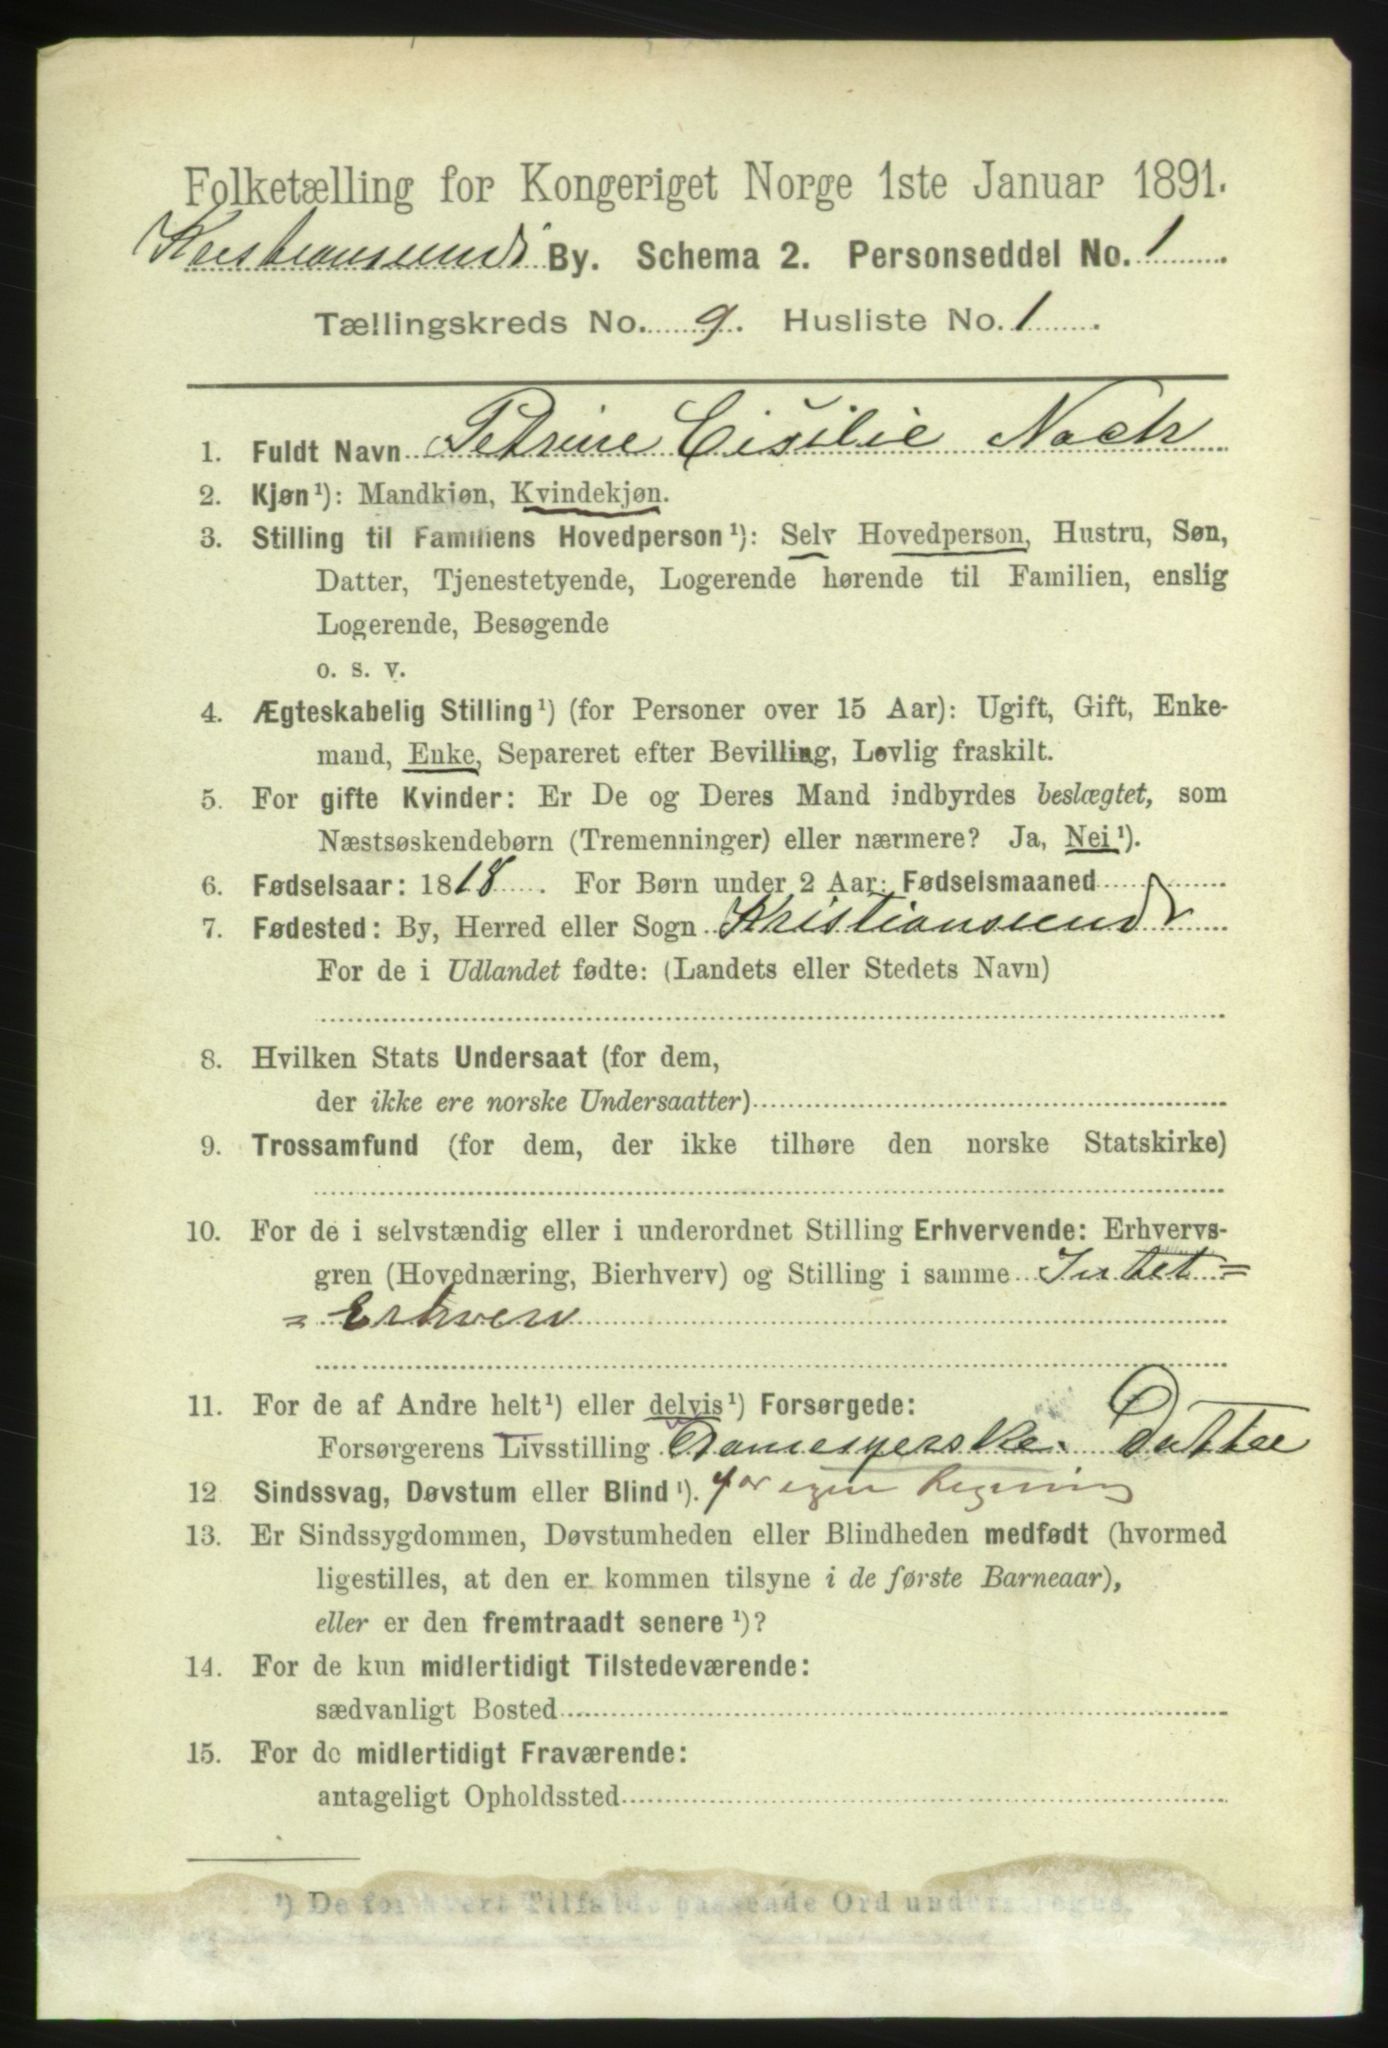 Folketælling for Kongeriget Norge 1ste Januar 1891.
Kristianssund By. Schema 2. Personseddel No. 1
Tællingskreds No. 9. Husliste No. 1.
1. Fuldt Navn Petrine Cisilie Nach
2. Kjøn¹): Mandkjøn, Kvindekjøn.
3. Stilling til Familiens Hovedperson¹): Selv Hovedperson, Hustru, Søn,
Datter, Tjenestetyende, Logerende hørende til Familien, enslig
Logerende, Besøgende
o. s. v.
4. Ægteskabelig Stilling¹) (for Personer over 15 Aar): Ugift, Gift, Enke-
mand, Enke, Separeret efter Bevilling, Lovlig fraskilt.
5. For gifte Kvinder: Er De og Deres Mand indbyrdes beslægtet, som
Næstsøskendebørn (Tremenninger) eller nærmere? Ja, Nei¹).
6. Fødselsaar: 1818. For Børn under 2 Aar: Fødselsmaaned
7. Fødested: By, Herred eller Sogn Kristianssund
For de i Udlandet fødte: (Landets eller Stedets Navn)
8. Hvilken Stats Undersaat (for dem,
der ikke ere norske Undersaatter)
9. Trossamfund (for dem, der ikke tilhøre den norske Statskirke)
10. For de i selvstændig eller i underordnet Stilling Erhvervende: Erhvervs-
gren (Hovednæring, Bierhverv) og Stilling i samme Intet =
= Erhverv
11. For de af Andre helt¹) eller delvis¹) Forsørgede:
Forsørgerens Livsstilling Damesyerske. Datter
12. Sindssvag, Døvstum eller Blind¹). for egen Regning
13. Er Sindssygdommen, Døvstumheden eller Blindheden medfødt (hvormed
ligestilles, at den er kommen tilsyne i de første Barneaar),
eller er den fremtraadt senere¹)?
14. For de kun midlertidigt Tilstedeværende:
sædvanligt Bosted
15. For de midlertidigt Fraværende:
antageligt Opholdssted
¹) De for hvert Tilfælde passende Ord understreges.